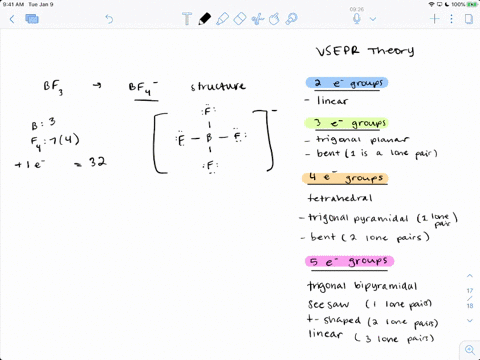 9:41 AM Tue Jan 9
09:26
VSEPR Theory
BF3 → BF4⁻ structure
2 e⁻ groups
- linear
B: 3
F4: 7(4)
+1 e⁻ = 32
F
F - B - F
F
3 e⁻ groups
- trigonal planar
- bent (1 is a lone pair)
4 e⁻ groups
tetrahedral
- trigonal pyramidal (1 lone pair)
- bent (2 lone pairs)
5 e⁻ groups
trigonal bipyramidal
seesaw (1 lone pair)
t-shaped (2 lone pairs)
linear (3 lone pairs)
17
18